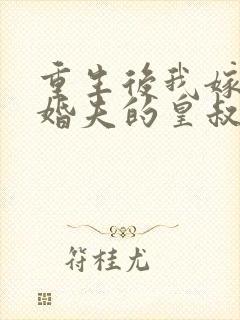 重生後我嫁
婚夫的皇叔
符桂尤